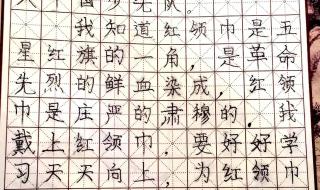 先队。
我知道红领巾是五
星红旗的一角，是革命
先烈的鲜血染成，红领
巾是庄严的肃穆的，我
戴上红领巾，要好好学
习天天向上，为红领巾